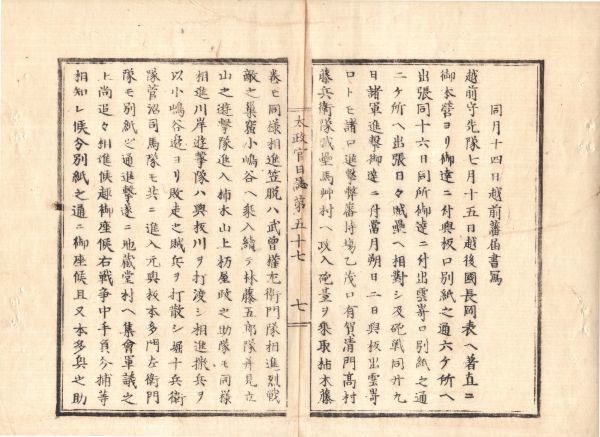 同月十四日越前藩届書寫
越前守先隊七月十五日越後國長岡表ヘ著直ニ
御本營ヨリ御達ニ付與板口別紙之通六ケ所ヘ
出張同十六日同所御達ニ付出雲嵜口別紙之通
二ケ所ヘ出張日々賊壘ヘ相對シ及砲戰同廿九
日諸軍進擊御達ニ付當月朔日二日與板出雲嵜
口トモ諸口進擊弊藩持場乙茂口有賀清門髙村
藤兵衛隊賊壘馬艸村ヘ攻入砲臺ヲ乘取柿木藤
太政官日誌第五十七 七
卷モ同樣相進笠脱ハ武曾權左衛門隊相進烈戰
敵之巢窟小嶋谷ヘ衆入續テ林藤五郎隊并見立
山之遊擊隊進入柿木山上杤屋政之助隊モ同樣
相進川岸遊擊隊ハ與板川ヲ打渡シ相進撒兵ヲ
以小嶋谷邊ヨリ敗走之賊兵ヲ打散シ堀十兵衛
隊菅沼司馬隊モ共ニ進入元與板本多門左衛門
隊モ別紙之通進擊遂ニ地藏堂村ヘ集會軍議之
上尚追々相進候趣御座候右戰爭中手負分捕等
相知レ候分別紙之通ニ御座候且又本多興之助